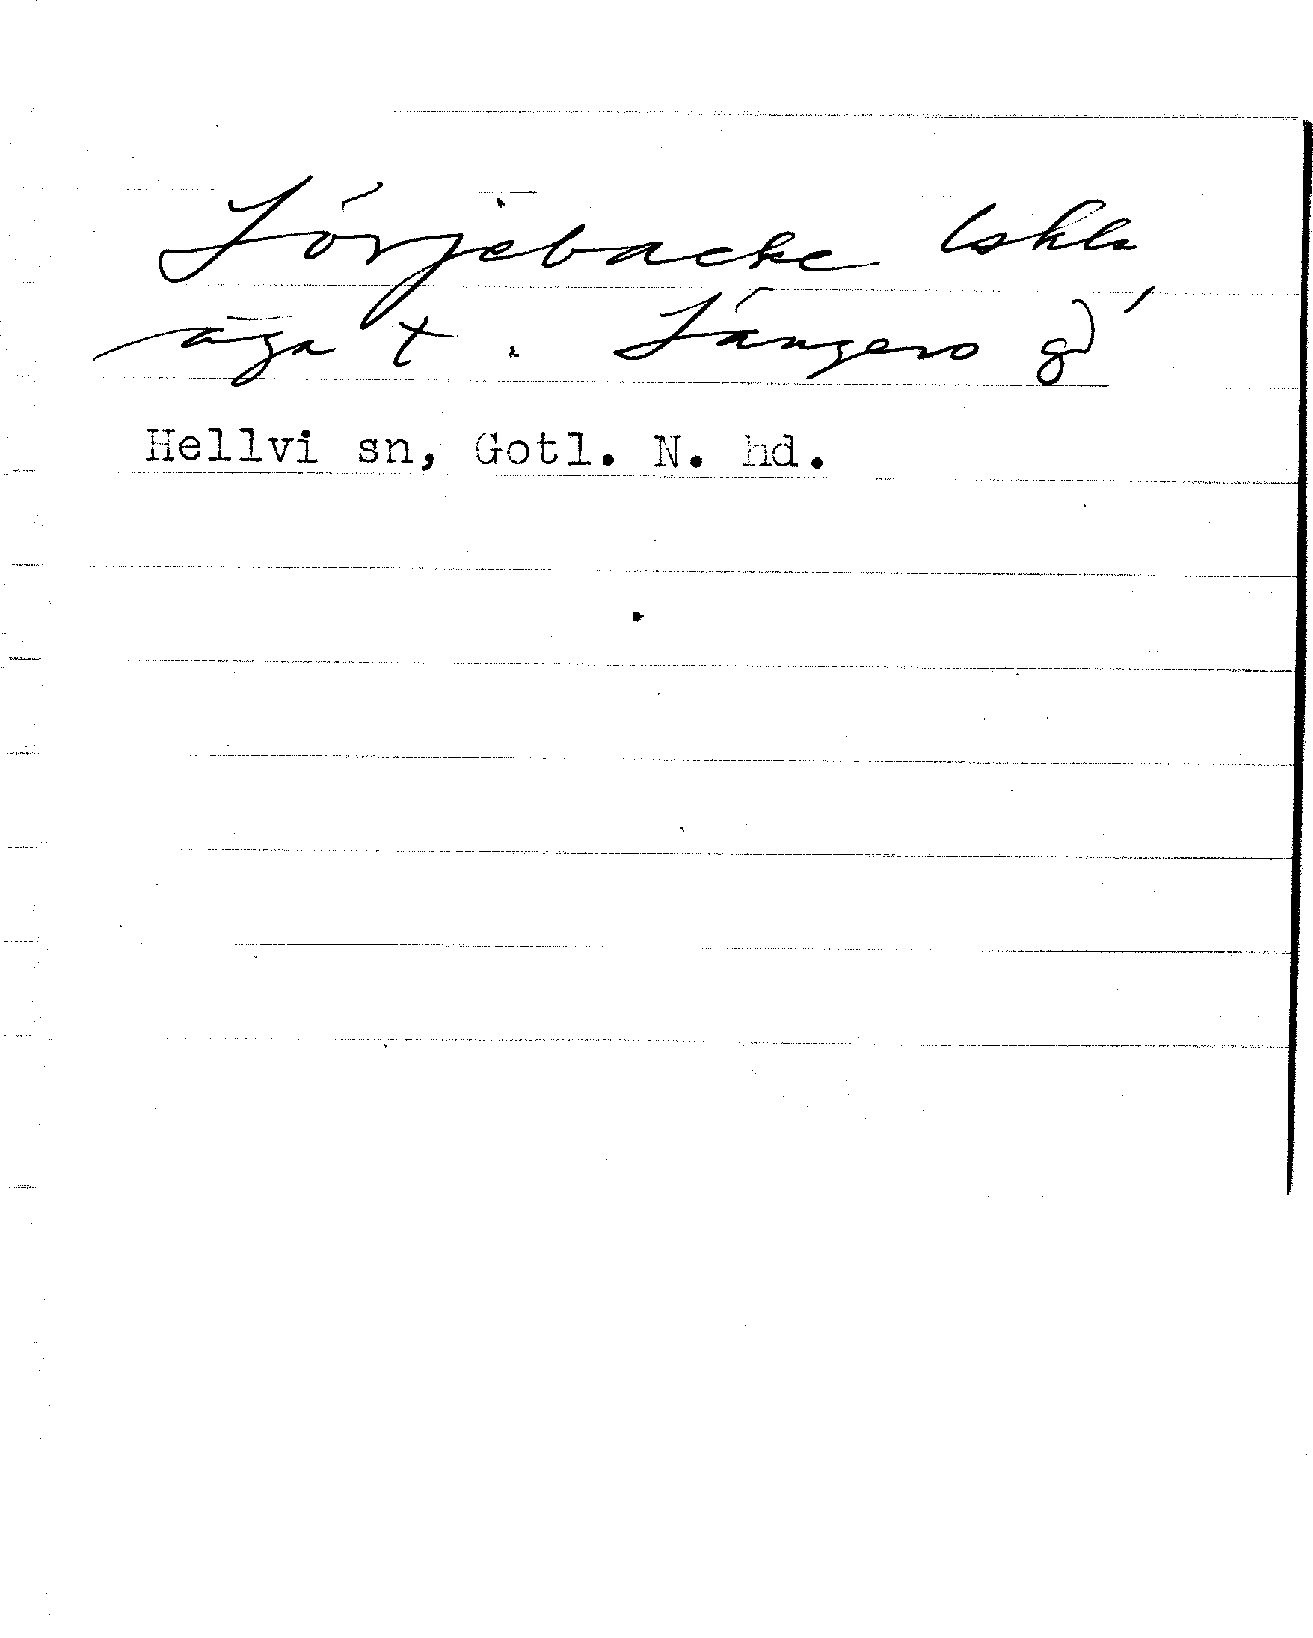 Sörjebacke lskh
äga t. Sängers gd
Hellvi sn, Gotl. N. hd.